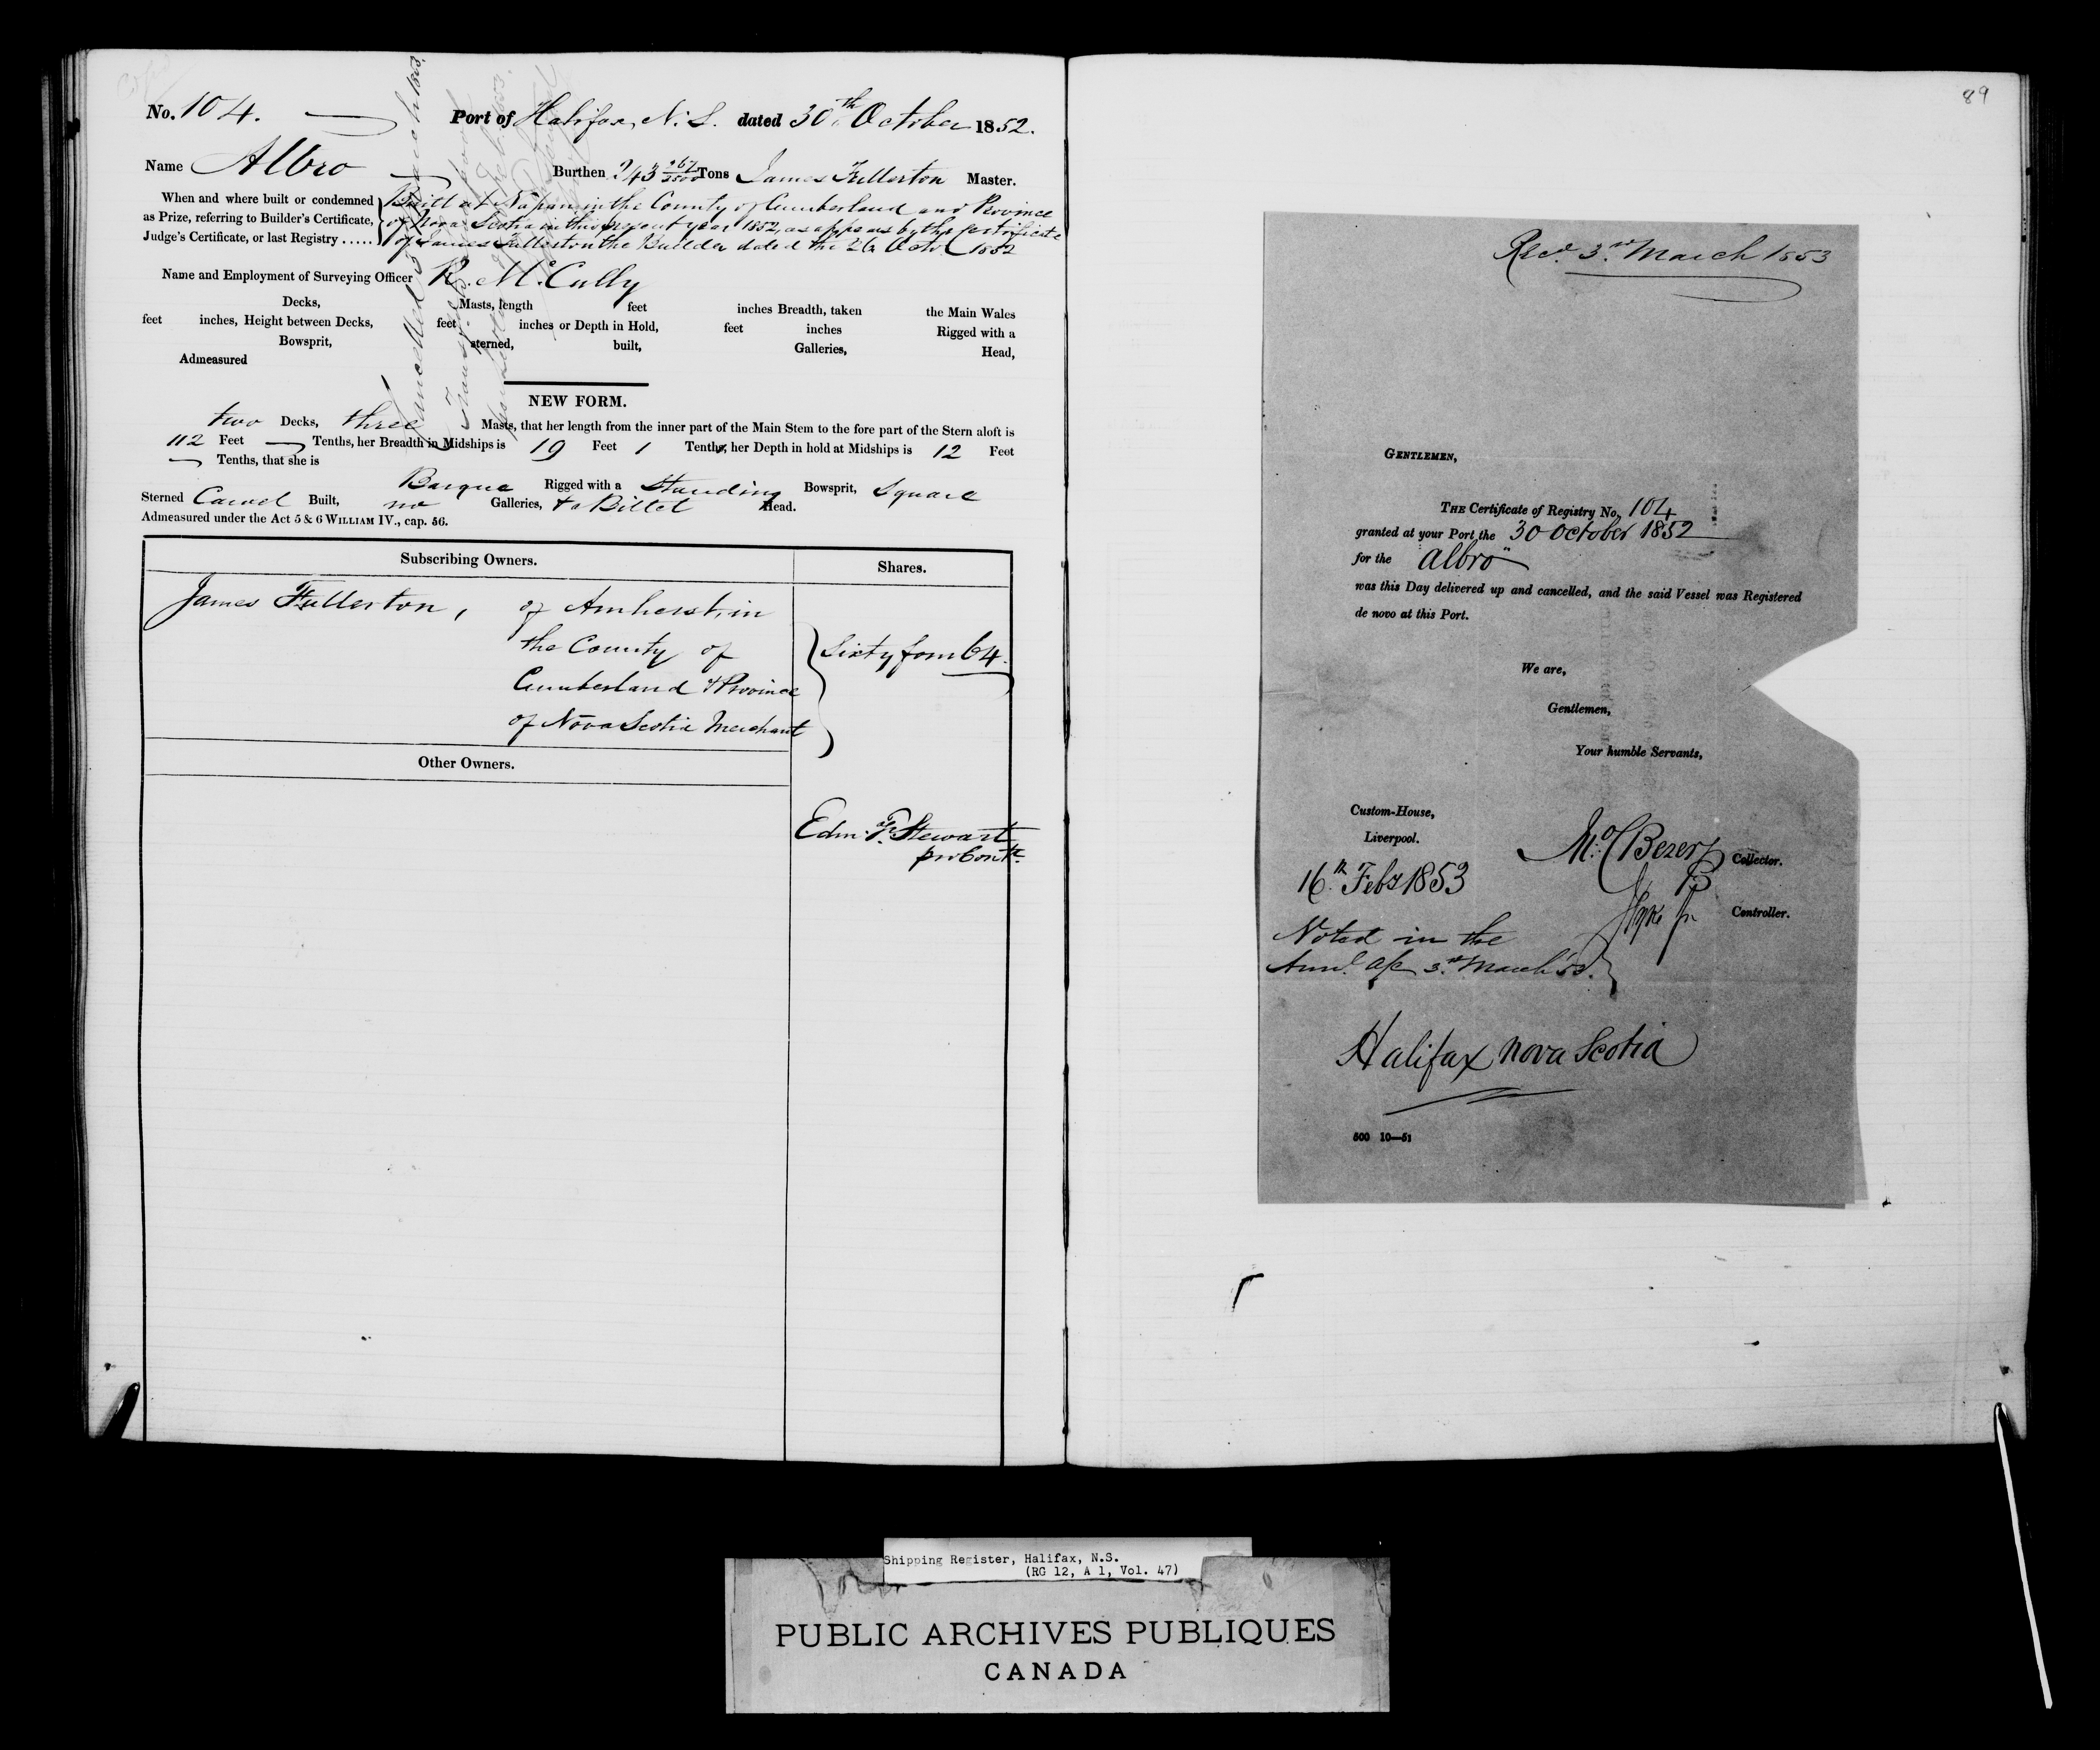 No. 104.
Port of Halifax, N.S. dated 30th October 1852.
Name Albro
Burthen 243 Tons James Fullerton Master.
When and where built or condemned
as Prize, referring to Builder's Certificate,
Judge's Certificate, or last Registry .....
Built at Napan in the County of Cumberland and Province
of Nova Scotia in this present year 1852, as appears by the certificate
of James Fullerton the Builder dated the 26 Octr. 1852
Name and Employment of Surveying Officer R. McCully
Decks, Masts, length feet inches Breadth, taken the Main Wales
feet inches, Height between Decks, feet inches or Depth in Hold, feet inches Rigged with a
Bowsprit, sterned, built, Galleries, Head,
Admeasured
Cancelled 3 March 1853.
NEW FORM.
two Decks, three Masts, that her length from the inner part of the Main Stem to the fore part of the Stern aloft is
112 Feet Tenths, her Breadth in Midships is 19 Feet 1 Tenths, her Depth in hold at Midships is 12 Feet
Tenths, that she is
Barque Rigged with a Standing Bowsprit, Square
Sterned Carvel Built, no Galleries, & a Billet Head.
Admeasured under the Act 5 & 6 WILLIAM IV., cap. 56.
Subscribing Owners.
Shares.
James Fullerton, of Amherst, in
the County of
Cumberland & Province
of Nova Scotia Merchant
Sixty four 64.
Other Owners.
Edm. Stewart
pro Contr.
89
Recd. 3rd March 1853
GENTLEMEN,
THE Certificate of Registry No. 104
granted at your Port the 30 October 1852
for the "Albro"
was this Day delivered up and cancelled, and the said Vessel was Registered
de novo at this Port.
We are,
Gentlemen,
Your humble Servants,
Custom-House,
Liverpool.
16th Feby 1853
Collector.
Controller.
Noted in the
Annl. a/c 3rd March 53.
Halifax Nova Scotia
500 10—51
Shipping Register, Halifax, N.S.
(RG 12, A 1, Vol. 47)
PUBLIC ARCHIVES PUBLIQUES
CANADA